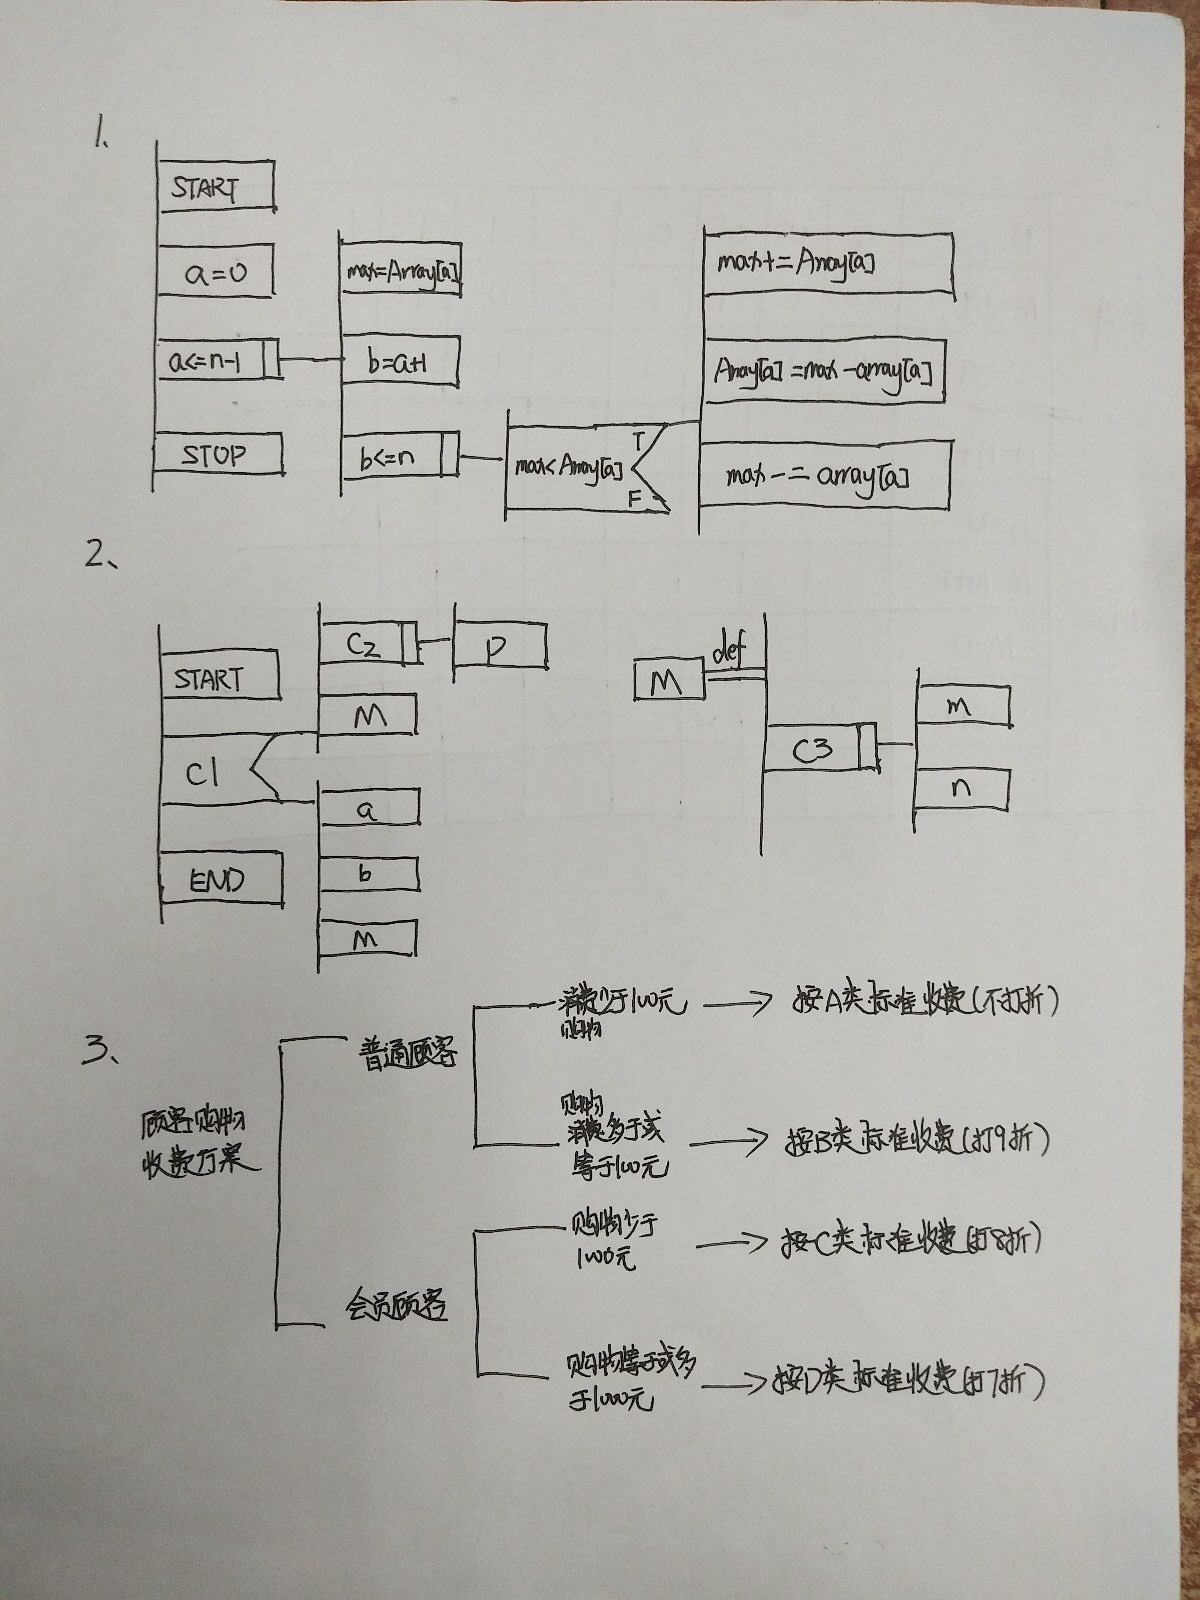 1、
START
a=0
a<=n-1
STOP
max=Array[a]
b=a+1
b<=n
max<Array[a]
T
F
max+=Array[a]
Array[a]=max-array[a]
max-=array[a]
2、
START
C1
END
C2
P
M
a
b
M
M
def
C3
m
n
3、
顾客购物
收费方案
普通顾客
消费少于100元
购物
按A类标准收费(不打折)
购物
消费多于或
等于100元
按B类标准收费(打9折)
会员顾客
购物少于
1000元
按C类标准收费(打8折)
购物等于或多
于1000元
按D类标准收费(打7折)